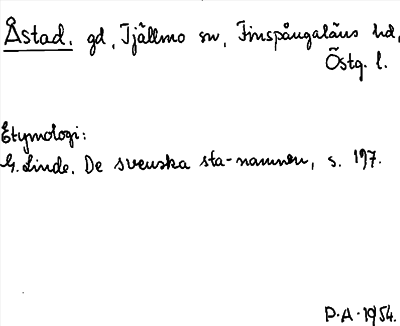 Åstad. gd, Tjällmo sn, Finspångaläns hd,
Östg. l.
Etymologi:
G. Linde. De svenska sta-namnen, s. 197.
P.A. 1954.